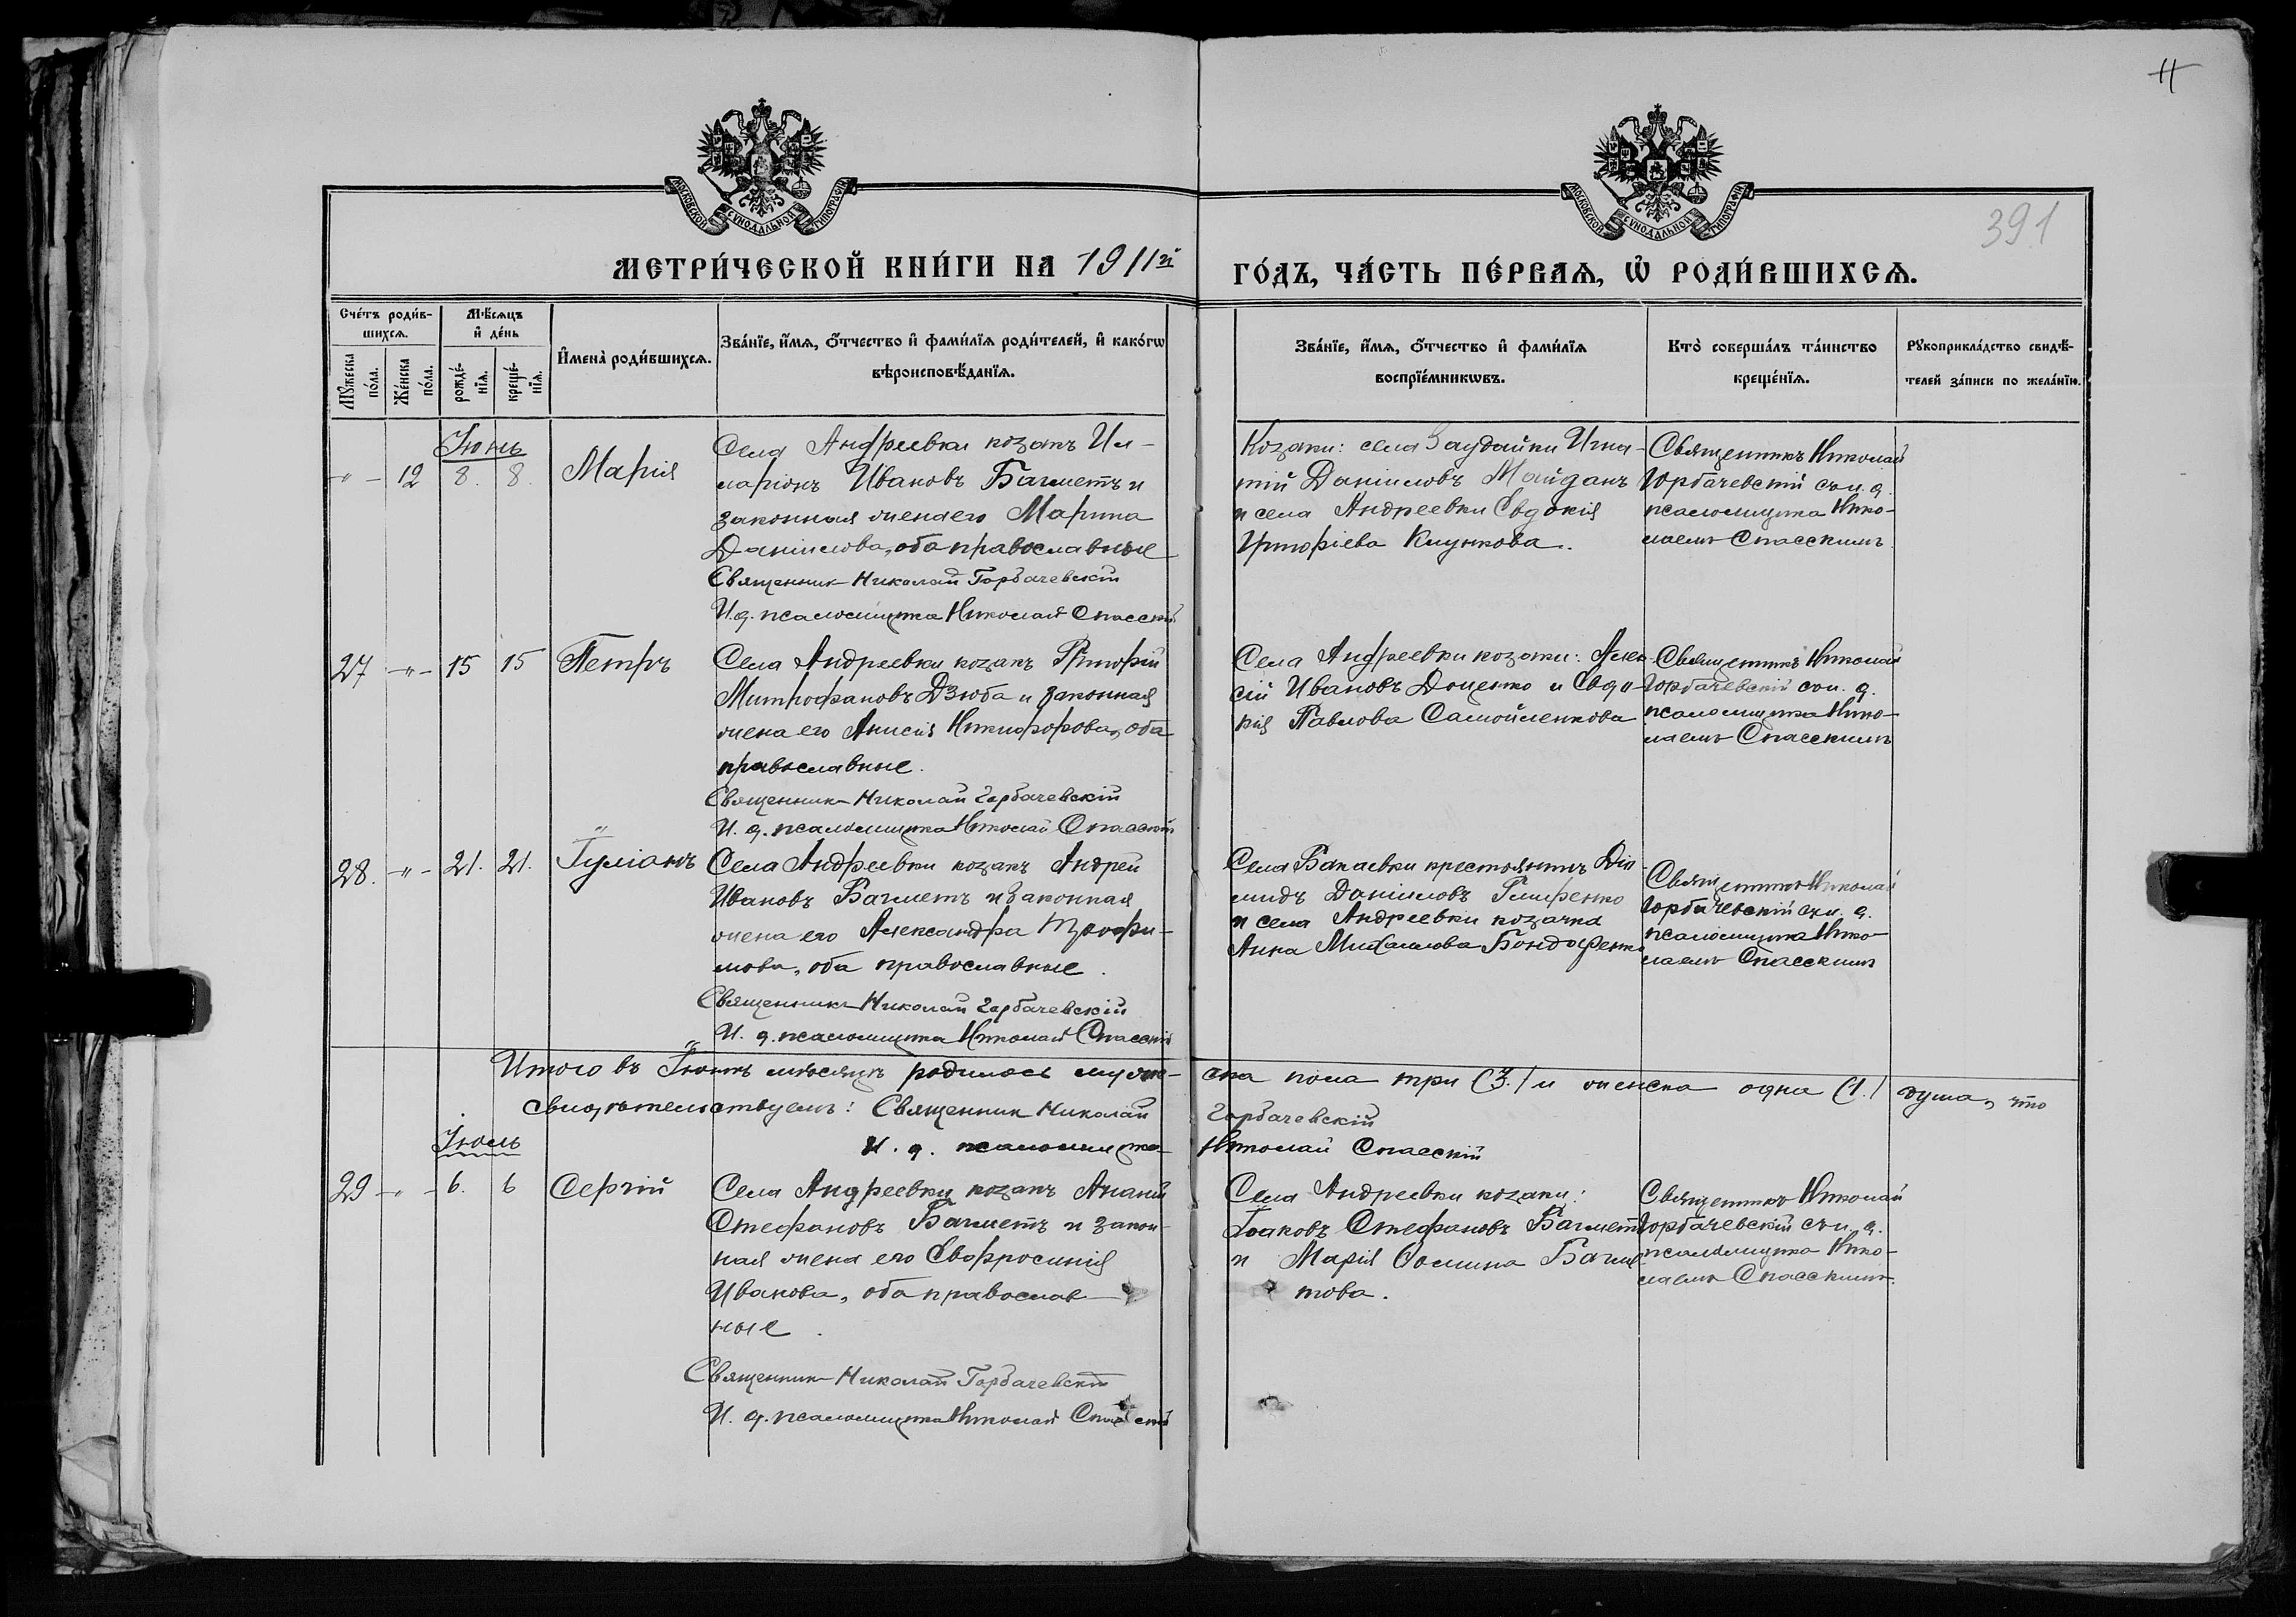 11
391
МОСКОВСКОЙ СѴНОДАЛЬНОЙ ТИПОГРАФІИ
МОСКОВСКОЙ СѴНОДАЛЬНОЙ ТИПОГРАФІИ
МЕТРИ́ЧЕСКОЙ КНИ́ГИ НА 1911й
ГО́ДЪ, ЧА́СТЬ ПЕ́РВАѦ, Ѡ РОДИ́ВШИХСѦ.
Сче́тъ роди́в-
шихсѧ.
Мꙋ́жеска по́ла.
Же́нска по́ла.
Мѣ́сяцъ
и҆ де́нь
рожде́-
нїѧ.
креще́-
нїѧ.
И҆мена̀ роди́вшихсѧ.
Зва́нїе, и҆́мѧ, ѻ҆́тчество и҆ фами́лїѧ роди́телей, и҆ како́гѡ
вѣроисповѣ́данїѧ.
Зва́нїе, и҆́мѧ, ѻ҆́тчество и҆ фами́лїѧ
воспрїе́мникѡвъ.
Кто̀ соверша́лъ та́инство
креще́нїѧ.
Рꙋкоприкла́дство свидѣ́-
телей за́писи по жела́нїю.
Іюнь
-"- 12 8. 8. Марія
Села Андреевки козакъ Ил-
ларіонъ Ивановъ Багметъ и
законная жена его Марина
Даніилова, оба православные
Священникъ Николай Горбачевскій
И. д. псаломщика Николай Спасскій
Козаки: села Заудайки Игна-
тій Даніиловъ Майданъ
и села Андреевки Евдокія
Григоріева Клункова.
Священникъ Николай
Горбачевскій съ и. д.
псаломщика Нико-
лаемъ Спасскимъ.
27 -"- 15 15 Петръ
Села Андреевки козакъ Григорій
Митрофановъ Дзюба и законная
жена его Анисія Никифорова, оба
православные.
Священникъ Николай Горбачевскій
И. д. псаломщика Николай Спасскій
Села Андреевки козаки: Алек-
сій Ивановъ Доценко и Евдо-
кія Павлова Самойленкова
Священникъ Николай
Горбачевскій съ и. д.
псаломщика Нико-
лаемъ Спасскимъ
28. -"- 21. 21. Іуліанъ
Села Андреевки козакъ Андрей
Ивановъ Багметъ и законная
жена его Александра Трофи-
мова, оба православные.
Священникъ Николай Горбачевскій
И. д. псаломщика Николай Спасскій
Села Бакаевки крестьянинъ Діо-
мидъ Даніиловъ
и села Андреевки козачка
Анна Михаилова Бондаренко
Священникъ Николай
Горбачевскій съ и. д.
псаломщика Нико-
лаемъ Спасскимъ
Итого въ Іюнѣ мѣсяцѣ родилось муже-
ска пола три (3.) и женска одна (1.) душа, что
свидѣтельствуемъ: Священник Николай
Горбачевскій
И. д. псаломщика
Николай Спасскій
Іюль
29 -"- 6. 6 Сергій
Села Андреевки козакъ Ананій
Стефановъ Багметъ и закон-
ная жена его Евфросинія
Иванова, оба православ-
ные.
Священникъ Николай Горбачевскій
И. д. псаломщика Николай Спасскій
Села Андреевки козаки:
Іоаковъ Стефановъ Багметъ
и Марія Фомина Багме-
това.
Священникъ Николай
Горбачевскій съ и. д.
псаломщика Нико-
лаемъ Спасскимъ.